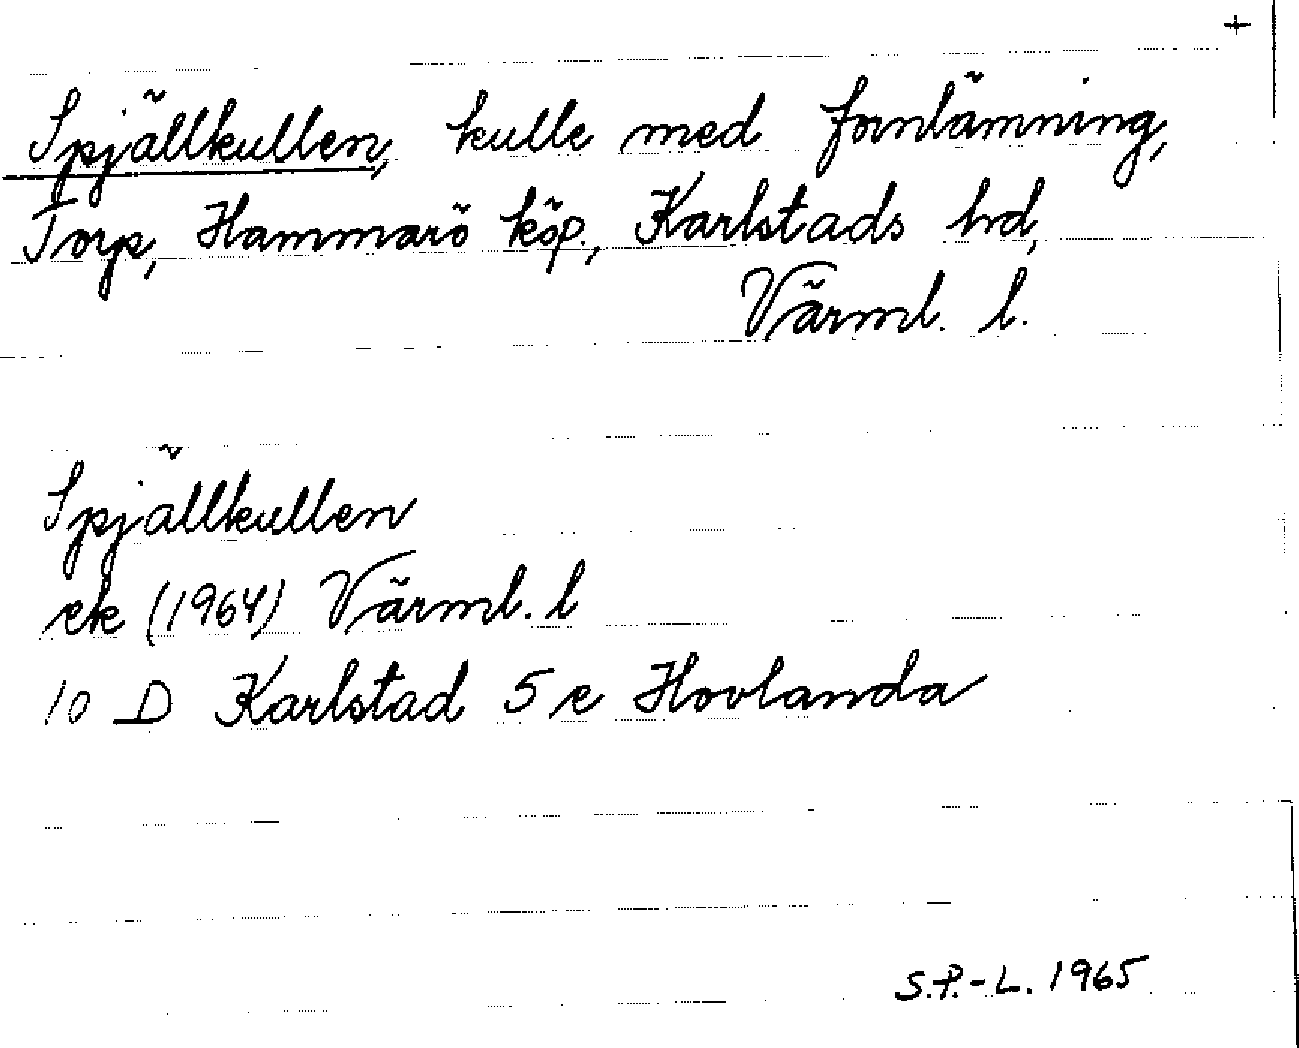 +
Spjällkullen, kulle med fornlämning,
Torp, Hammarö köp., Karlstads hd,
Värml. l.
Spjällkullen
ek (1964) Värml. l
10 D Karlstad 5 e Hovlanda
S.P.-L. 1965